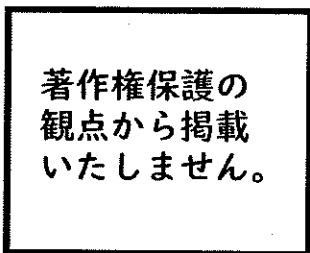 著作権保護の
観点から掲載
いたしません。